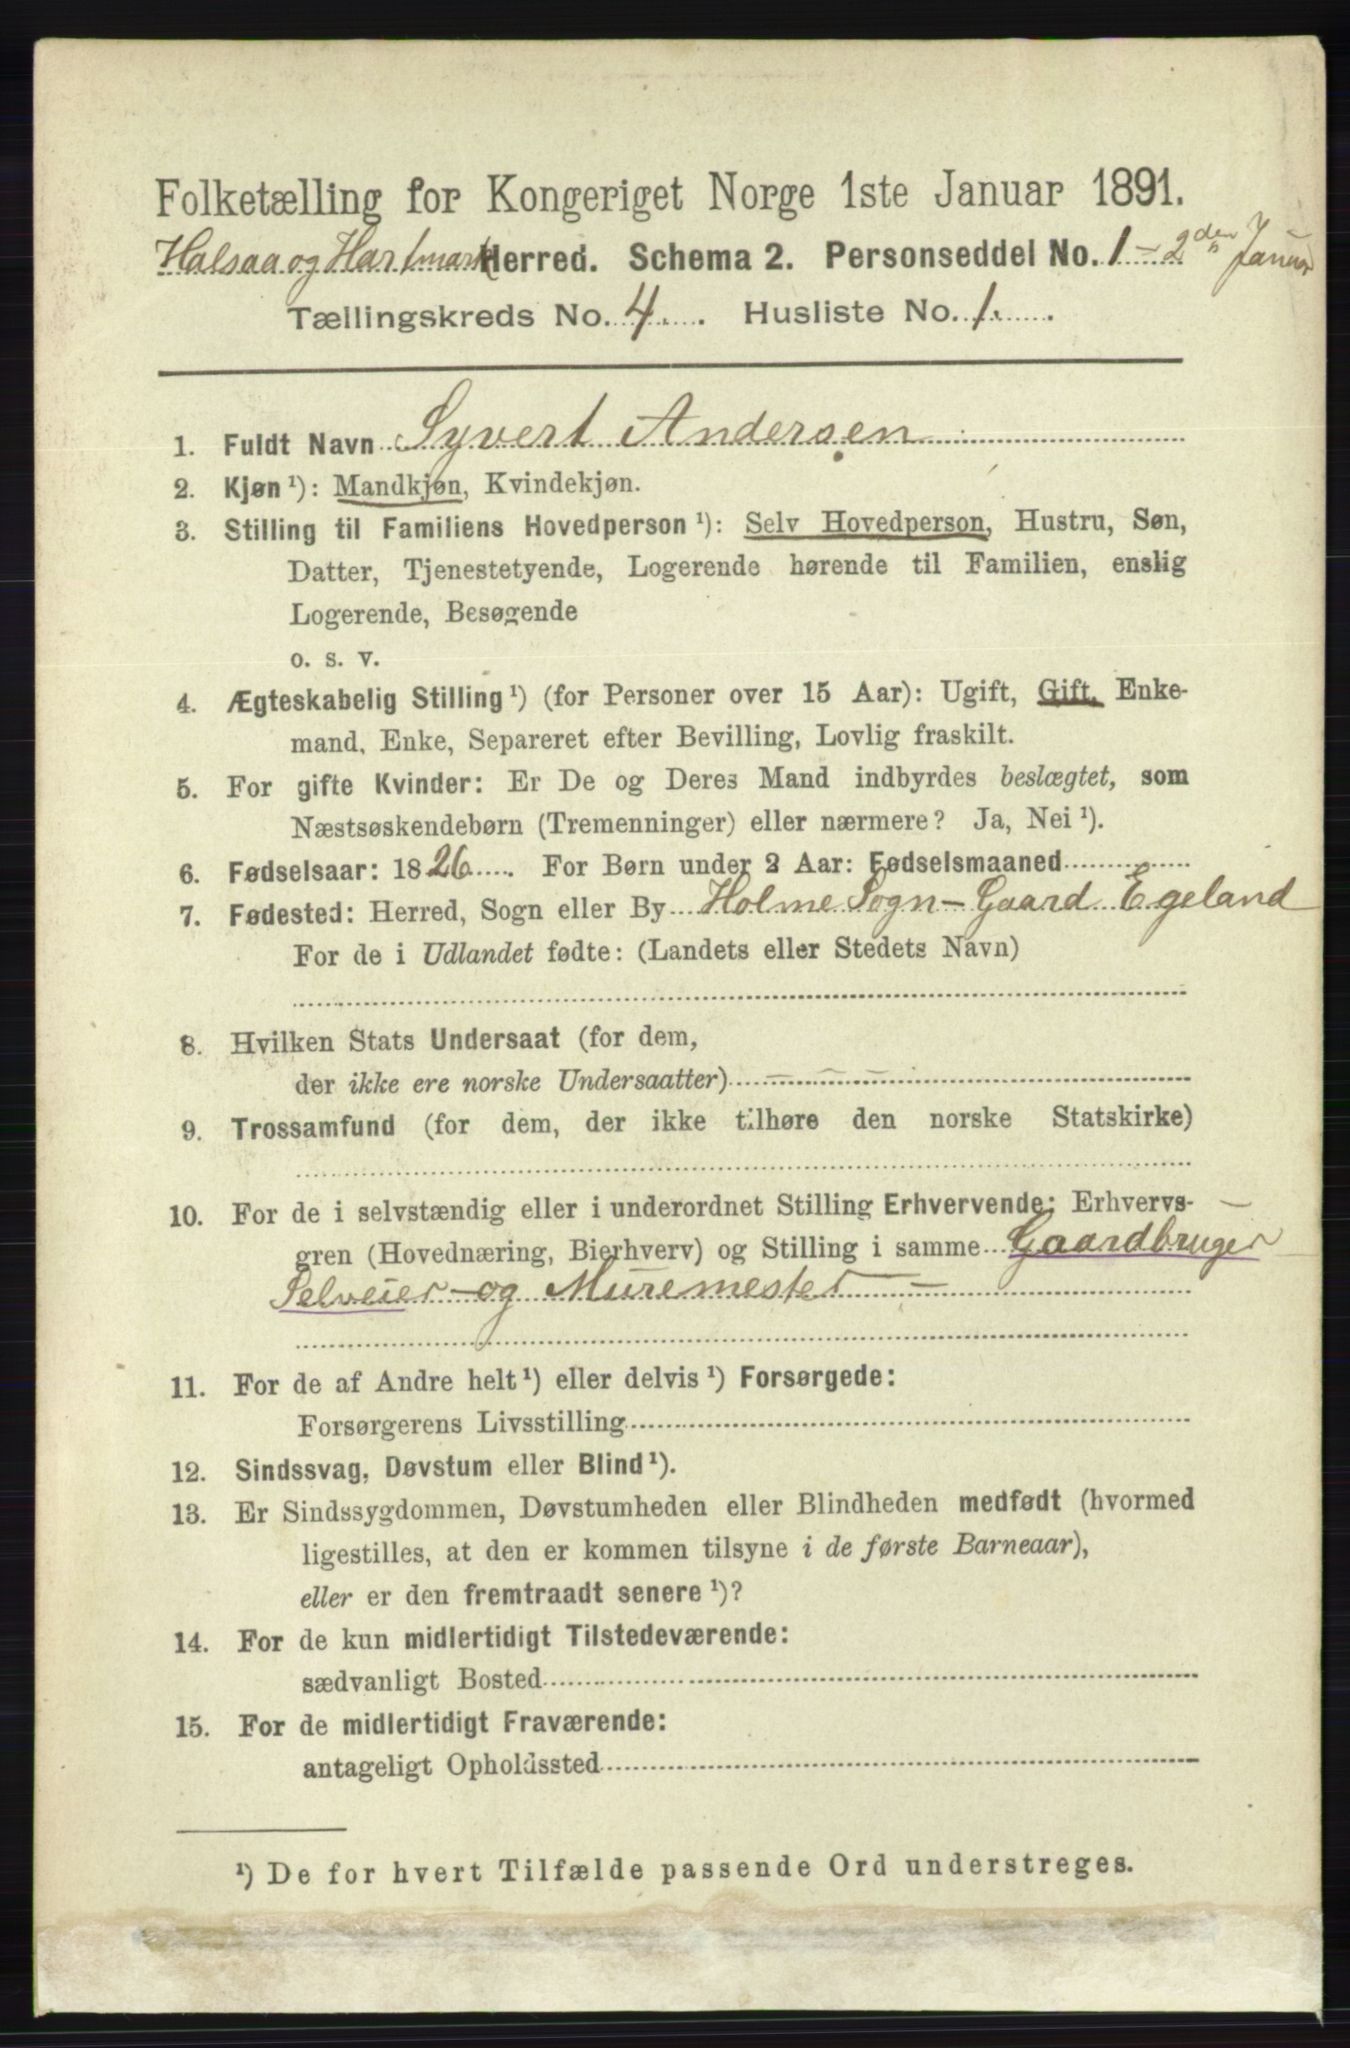 Folketælling for Kongeriget Norge 1ste Januar 1891.
Halsaa og Hartmark Herred. Schema 2. Personseddel No. 1 – 2den Januar
Tællingskreds No. 4. Husliste No. 1.
1. Fuldt Navn Syvert Andersen
2. Kjøn ¹): Mandkjøn, Kvindekjøn.
3. Stilling til Familiens Hovedperson ¹): Selv Hovedperson, Hustru, Søn,
Datter, Tjenestetyende, Logerende hørende til Familien, enslig
Logerende, Besøgende
o. s. v.
4. Ægteskabelig Stilling ¹) (for Personer over 15 Aar): Ugift, Gift, Enke-
mand, Enke, Separeret efter Bevilling, Lovlig fraskilt.
5. For gifte Kvinder: Er De og Deres Mand indbyrdes beslægtet, som
Næstsøskendebørn (Tremenninger) eller nærmere? Ja, Nei ¹).
6. Fødselsaar: 1826 For Børn under 2 Aar: Fødselsmaaned
7. Fødested: Herred, Sogn eller By Holme Sogn – Gaard Egeland
For de i Udlandet fødte: (Landets eller Stedets Navn)
8. Hvilken Stats Undersaat (for dem,
der ikke ere norske Undersaatter) – – –
9. Trossamfund (for dem, der ikke tilhøre den norske Statskirke)
10. For de i selvstændig eller i underordnet Stilling Erhvervende: Erhvervs-
gren (Hovednæring, Bierhverv) og Stilling i samme Gaardbruger
Selveier – og Muremester –
11. For de af Andre helt ¹) eller delvis ¹) Forsørgede:
Forsørgerens Livsstilling
12. Sindssvag, Døvstum eller Blind ¹).
13. Er Sindssygdommen, Døvstumheden eller Blindheden medfødt (hvormed
ligestilles, at den er kommen tilsyne i de første Barneaar),
eller er den fremtraadt senere ¹)?
14. For de kun midlertidigt Tilstedeværende:
sædvanligt Bosted
15. For de midlertidigt Fraværende:
antageligt Opholdssted
¹) De for hvert Tilfælde passende Ord understreges.